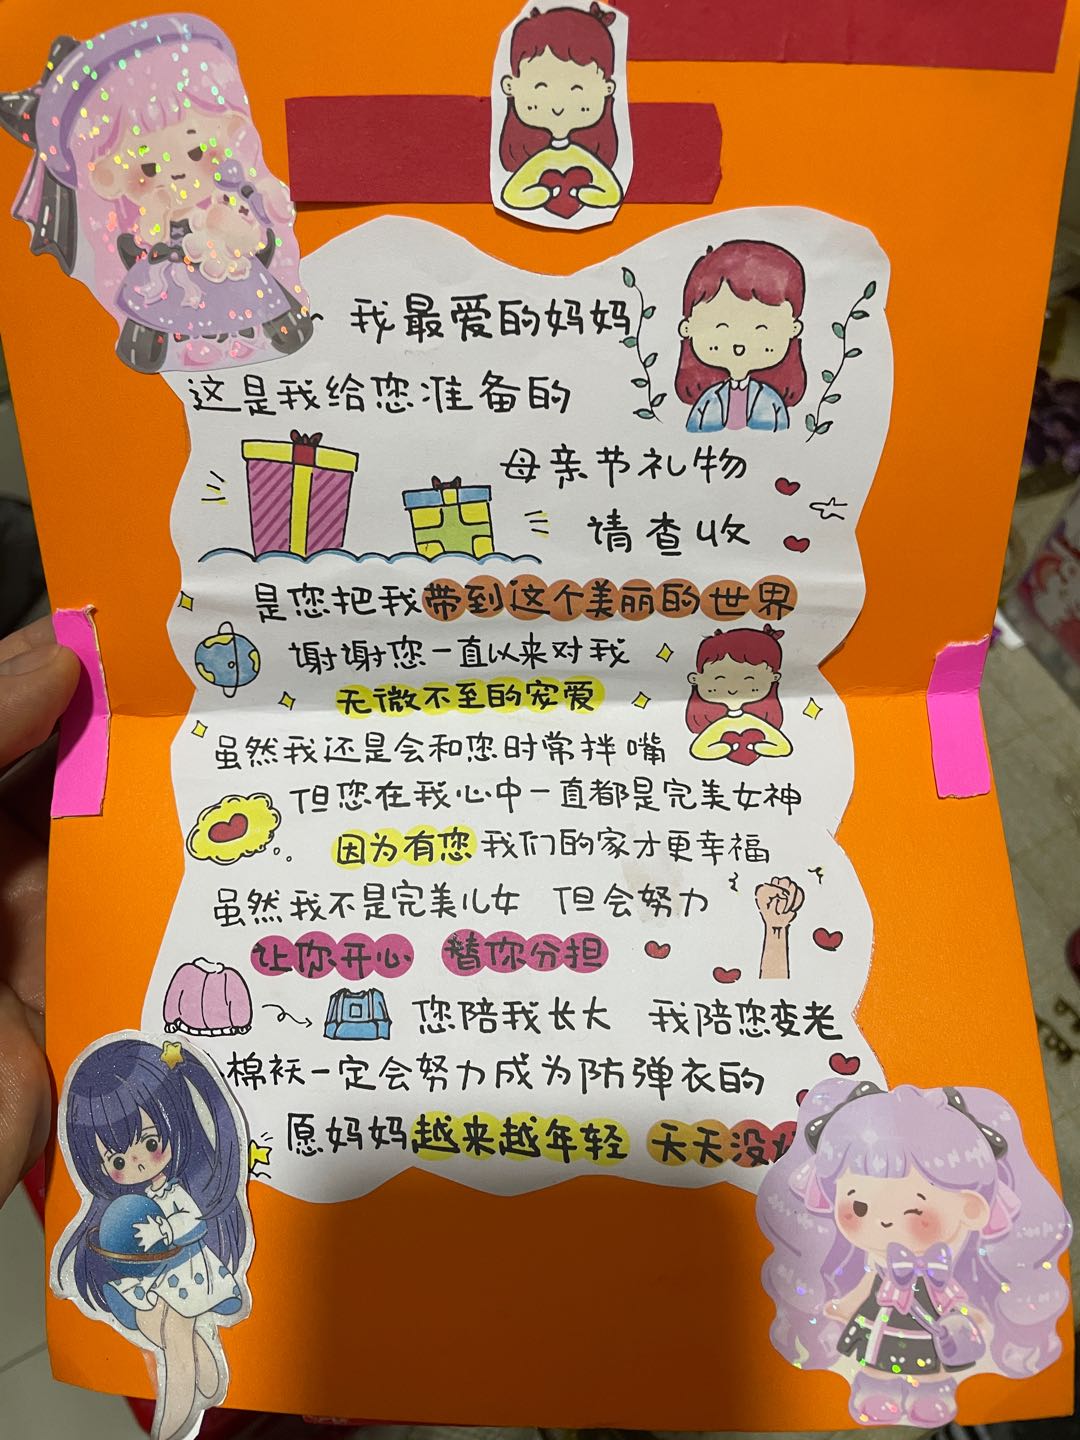 我最爱的妈妈
这是我给您准备的
母亲节礼物
请查收
是您把我带到这个美丽的世界
谢谢您一直以来对我
无微不至的宠爱
虽然我还是会和您时常拌嘴
但您在我心中一直都是完美女神
因为有您我们的家才更幸福
虽然我不是完美儿女 但会努力
让你开心 替你分担
您陪我长大 我陪您变老
棉袄一定会努力成为防弹衣的
愿妈妈越来越年轻 天天没